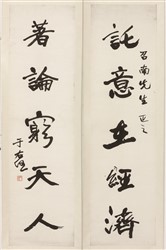 託意在經濟
召南先生正之
著論窮天人
于右任